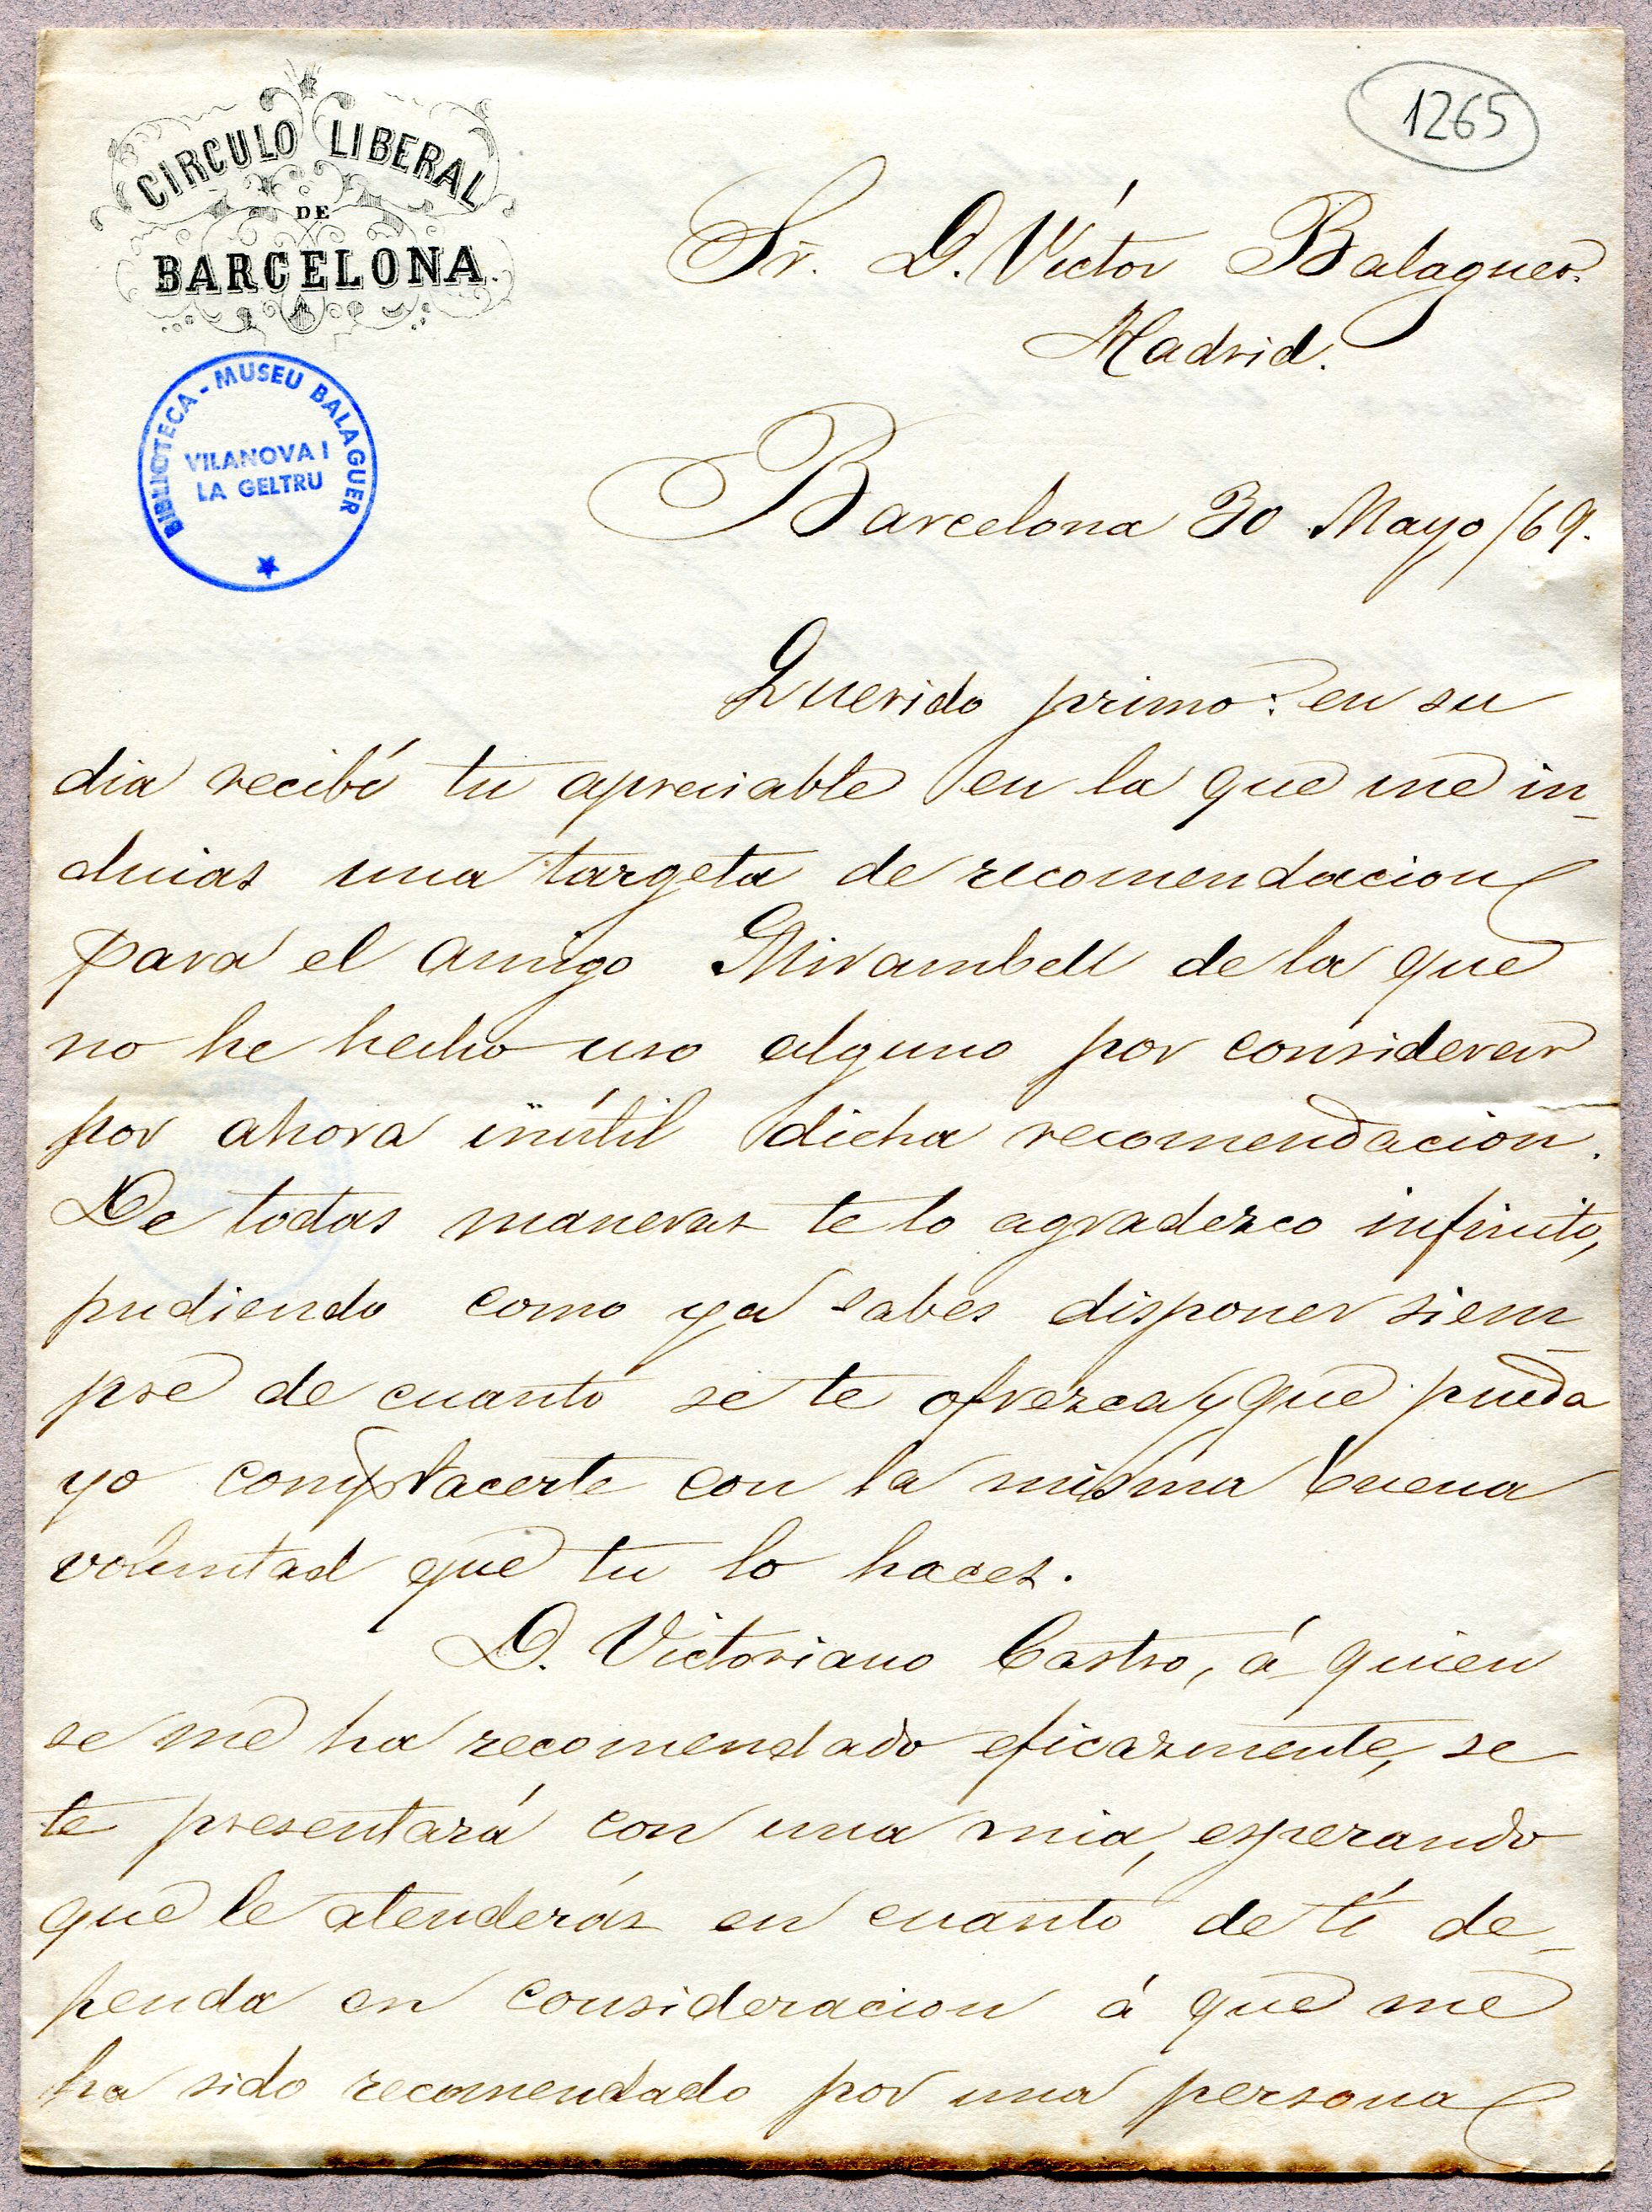 1265
CIRCULO LIBERAL
DE
BARCELONA
BIBLIOTECA - MUSEU BALAGUER
VILANOVA I
LA GELTRU
Sr. D. Víctor Balaguer.
Madrid.
Barcelona 30 Mayo /69.
Querido primo: en su
dia recibí tu apreciable en la que me in-
cluias una targeta de recomendacion
para el amigo Mirambell de la que
no he hecho uso alguno por considerar
por ahora inútil dicha recomendacion.
De todas maneras te lo agradezco infinito,
pudiendo como ya sabes disponer siem-
pre de cuanto se te ofrezca y que pueda
yo complacerte con la misma buena
voluntad que tu lo haces.
D. Victoriano Castro, á quien
se me ha recomendado eficazmente, se
te presentará con una mia, esperando
que le atenderás en cuanto de tí de-
penda en consideracion á que me
ha sido recomendado por una persona